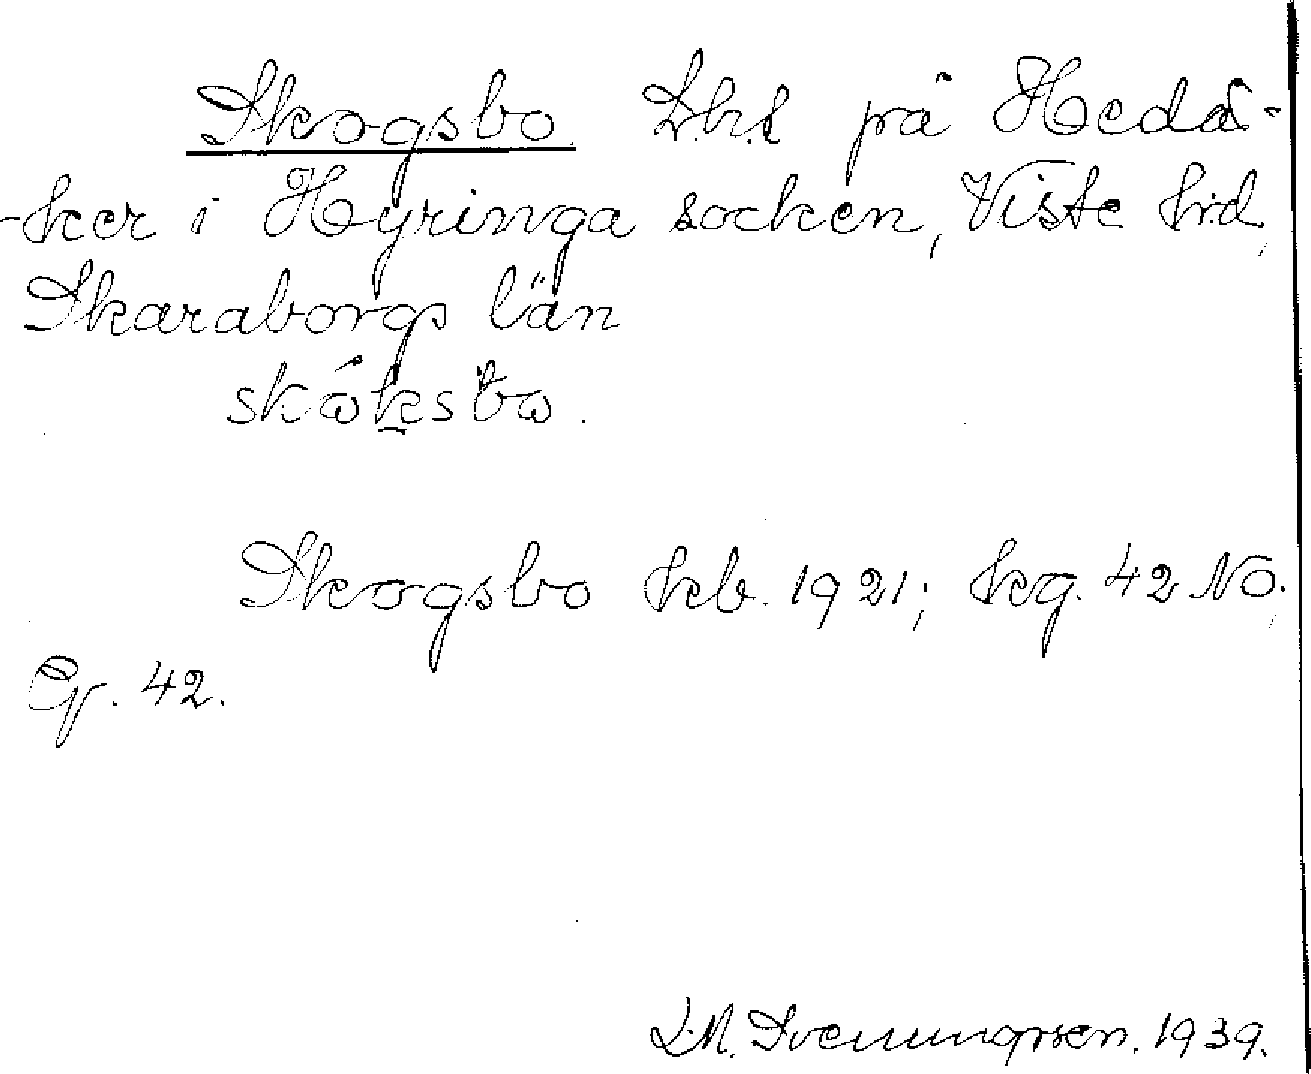 Skogsbo L.h.l på Hedå-
-ker i Hyringa socken, Viste hd,
Skaraborgs län
skóksbo.
Skogsbo kb. 1921; kg. 42 NO.
Gr. 42.
L.M. Svenungsson. 1939.